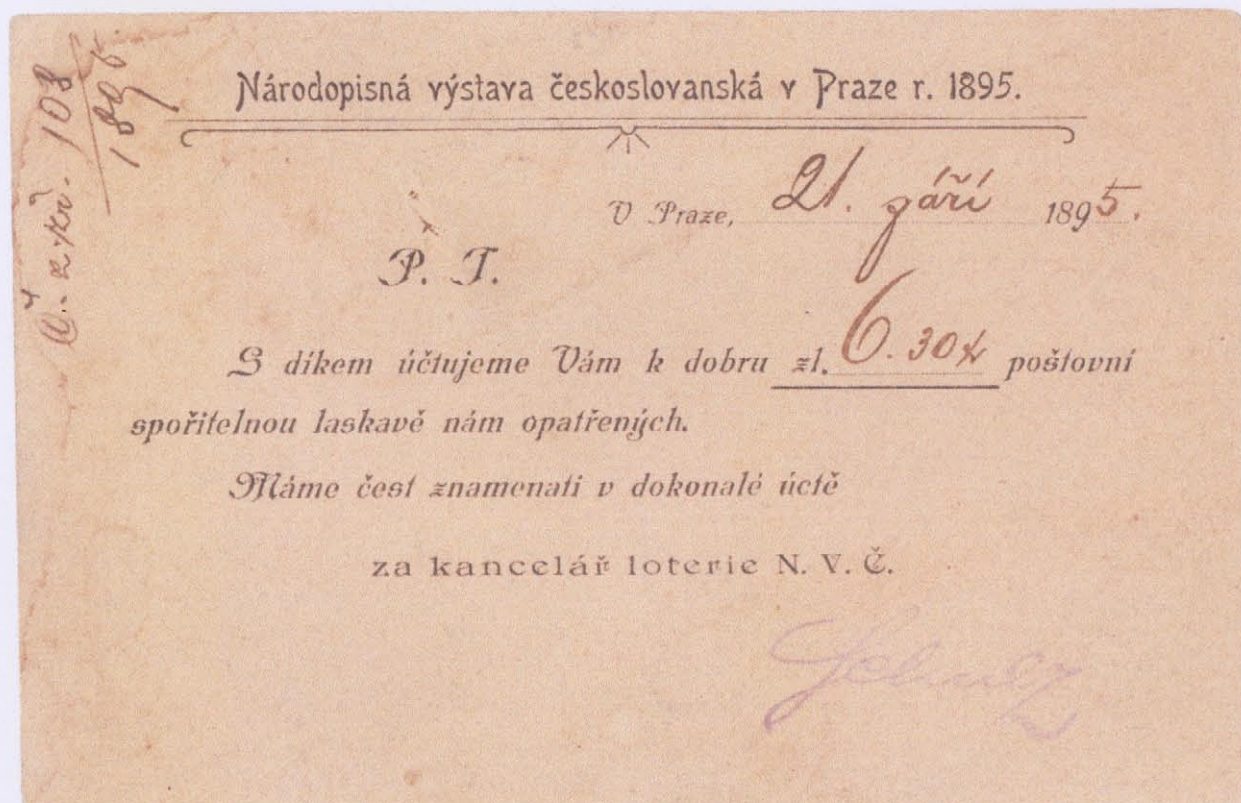 108
1895
Národopisná výstava československá v Praze r. 1895.
V Praze, 21. září 1895.
P. T.
S díkem účtujeme Vám k dobru zl. 6.30 x poštovní
spořitelnou laskavě nám opatřených.
Máme čest znamenati v dokonalé úctě
za kancelář loterie N. V. Č.